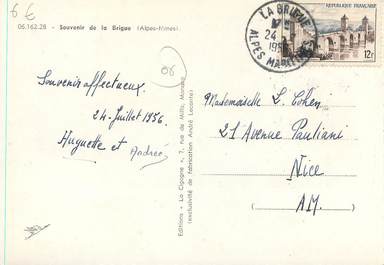 6 €
06.162.28 - Souvenir de la Brigue (Alpes-Mmes).
06
Souvenir affectueux
24 Juillet 1956
Huguette et Andrée
Editions "La Cigogne", 7, rue de Millo, Monaco
(exclusivité de fabrication André Leconte)
LA BRIGUE
24
ALPES MARITIMES
REPUBLIQUE FRANÇAISE
12F
Mademoiselle L. Cohen
21 Avenue Pauliani
Nice
A.M.